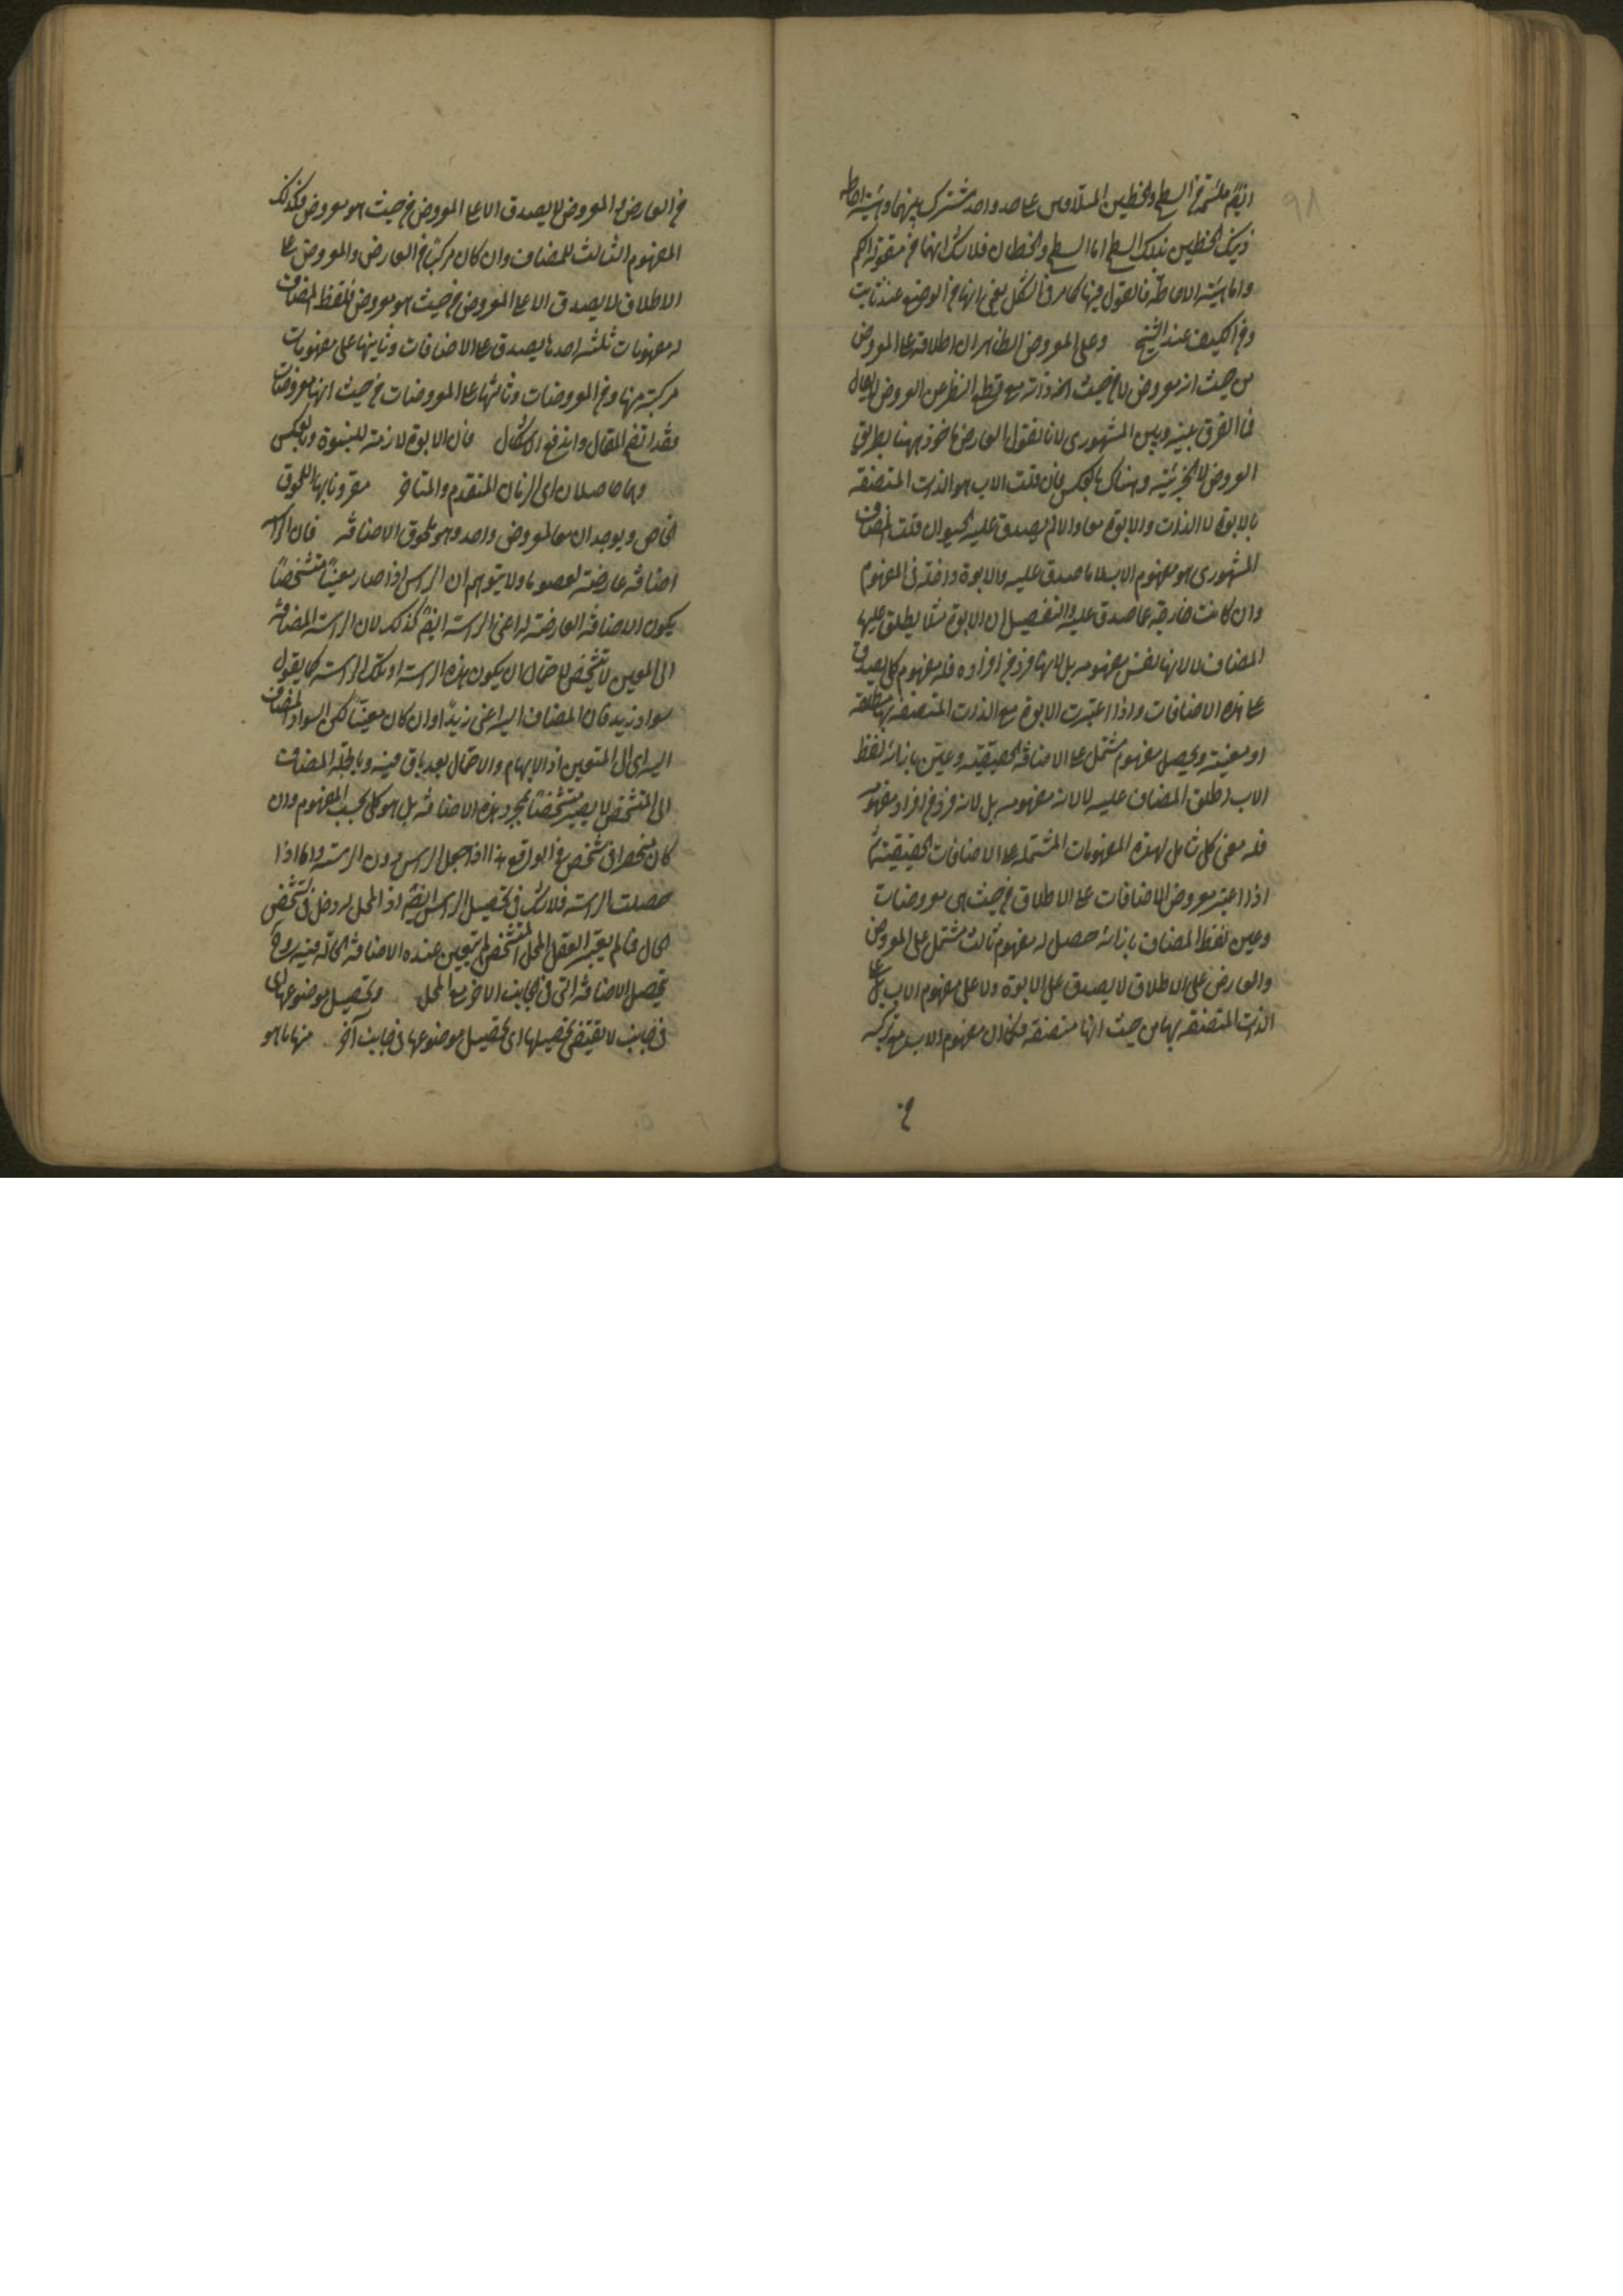 ٩٨
ايضا ملتئمة من السطح والخطين المتلاقيين على حد واحد مشترك بينهما وهيئة احاطة
ذينك الخطين بذلك السطح اما السطح والخطان فلا شك انهما من مقولة الكم
واما هيئة الاحاطة فالقول فيها كما مر في الشكل يعني انها من الوضع عند ثابت
ومن الكيف عند الشيخ وعلى المعروض الظاهر ان اطلاقه على المعروض
من حيث انه معروض لا من حيث ذاته مع قطع النظر عن العروض لا يقال
فما الفرق بينه وبين المشهوري لانا نقول العارض ماخوذ ههنا بطريق
العروض لا الجزئية وهناك بالعكس فان قلت الاب هو الذات المتصفة
بالابوة لا الذات والابوة معا والا لم يصدق عليه الحيوان قلت المضاف
المشهوري هو مفهوم الاب لا ما صدق عليه والابوة داخلة في المفهوم
وان كانت خارجة عما صدق عليه والتفصيل ان الابوة مثلا يطلق عليها
المضاف لا لانها نفس مفهومه بل لانها فرد من افراده فله مفهوم كلي يصدق
على هذه الاضافات واذا اعتبرت الابوة مع الذات المتصفة بها مطلقة
او معينة ويحصل مفهوم مشتمل على الاضافة الحقيقية وعين بازائه لفظ
الاب اطلق المضاف عليه لا لانه مفهومه بل لانه فرد من افراد مفهومه
فله معنى كلي شامل لهذه المفهومات المشتملة على الاضافات الحقيقية ثم
اذا اعتبر معروض الاضافات على الاطلاق من حيث هي معروضات
وعين لفظ المضاف بازائه حصل له مفهوم ثالث مشتمل على المعروض
والعارض على الاطلاق لا يصدق على الابوة ولا على مفهوم الاب بل على
الذات المتصفة بها من حيث انها متصفة فكما ان مفهوم الاب مع تركبه
من
من العارض والمعروض لا يصدق الا على المعروض من حيث هو معروض فكذلك
المفهوم الثالث للمضاف وان كان مركبا من العارض والمعروض على
الاطلاق لا يصدق الا على المعروض من حيث هو معروض فلفظ المضاف
له مفهومات ثلثه احدها يصدق على الاضافات وثانيها على مفهومات
مركبة منها ومن المعروضات وثالثها على المعروضات من حيث انها معروضات
فقد اتضح المقال واندفع الاشكال فان الابوة لازمة للبنوة وبالعكس
وهما حاصلان اي الزمان المتقدم والمتاخر مقرونا بها اللحوق
الخاص ويوجدان معا لمعروض واحد وهو لحوق الاضافة فان الراس
اضافة عارضة لعضو ما ولا يتوهم ان الراس اذا صار معينا متشخصا
يكون الاضافة العارضة له اعني الراسية ايضا كذلك لان الراسية المضافة
الى المعين لا تتشخص لاحتمال ان يكون هذه الراسية او تلك الراسية كما يقول
سواد زيد فان المضاف اليه اعني زيدا وان كان معينا لكن السواد المضاف
اليه اي الى المتعين اذ الابهام والاحتمال بعد باق فيه وبالجملة المضاف
الى المتشخص لا يصير متشخصا بمجرد هذه الاضافة بل هو كلي بحسب المفهوم وان
كان منحصرا في شخص في الواقع هذا اذا حصل الراس بدون الراسية واما اذا
حصلت الراسية فلا شك في تحصيل الراس ايضا اذ المحل له دخل في تشخص
الحال فما لم يعتبر العقل المحل المتشخص لم يتعين عنده الاضافة الحالة فيه
تحصل الاضافة التي في الجانب الاخر مع المحل وتحصيل موضوعها اي
في جانب لا يقتضي تحصيلها اي تحصيل موضوعها في جانب آخر منها ما هو